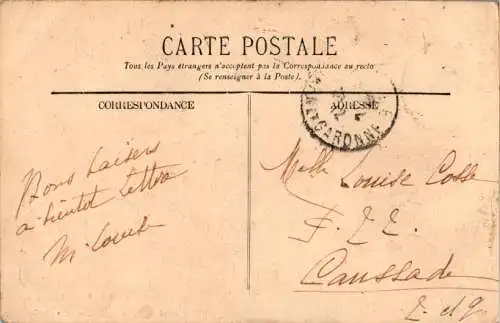 CARTE POSTALE
Tous les Pays étrangers n'acceptent pas la Correspondance au recto
(Se renseigner à la Poste).
CORRESPONDANCE
ADRESSE
ET GARONNE
Bons baisers
à bientôt lettre
M. Louise
Melle Louise Cosse
F. E E.
Caussade
T. et G.